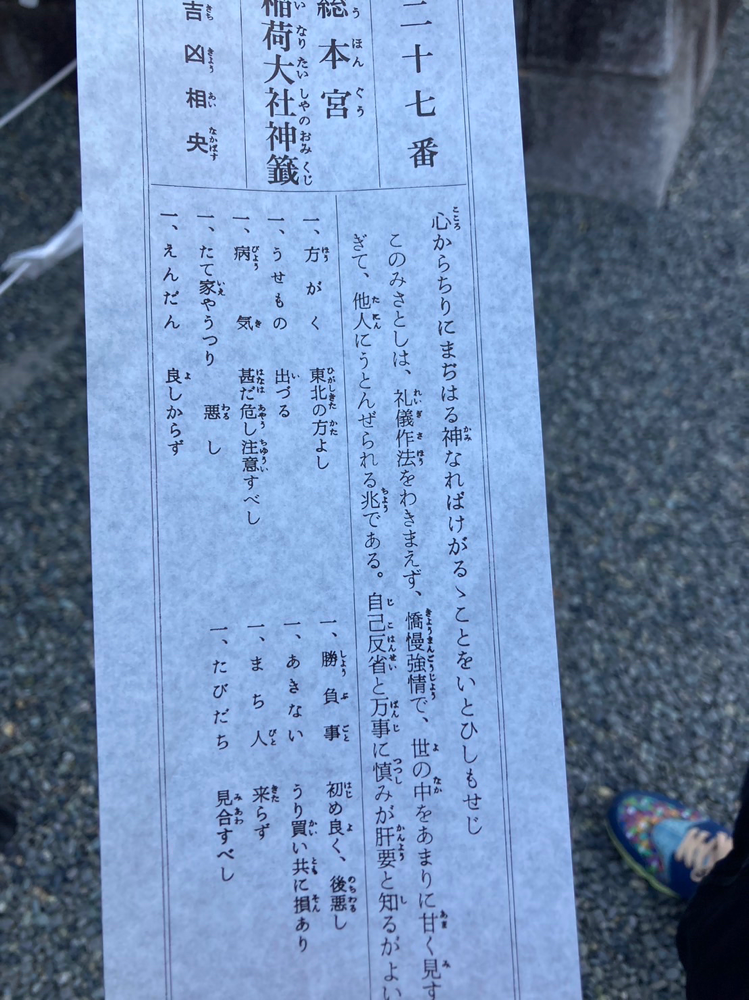 二十七番
総本宮
稲荷大社神籤
吉凶相央
心からちりにまぢはる神なればけがるゝことをいとひしもせじ
このみさとしは、礼儀作法をわきまえず、憍慢強情で、世の中をあまりに甘く見す
ぎて、他人にうとんぜられる兆である。自己反省と万事に慎みが肝要と知るがよい
一、方がく 東北の方よし
一、うせもの 出づる
一、病気 甚だ危し注意すべし
一、たて家やうつり 悪し
一、えんだん 良しからず
一、勝負事 初め良く、後悪し
一、あきない うり買い共に損あり
一、まち人 来らず
一、たびだち 見合すべし